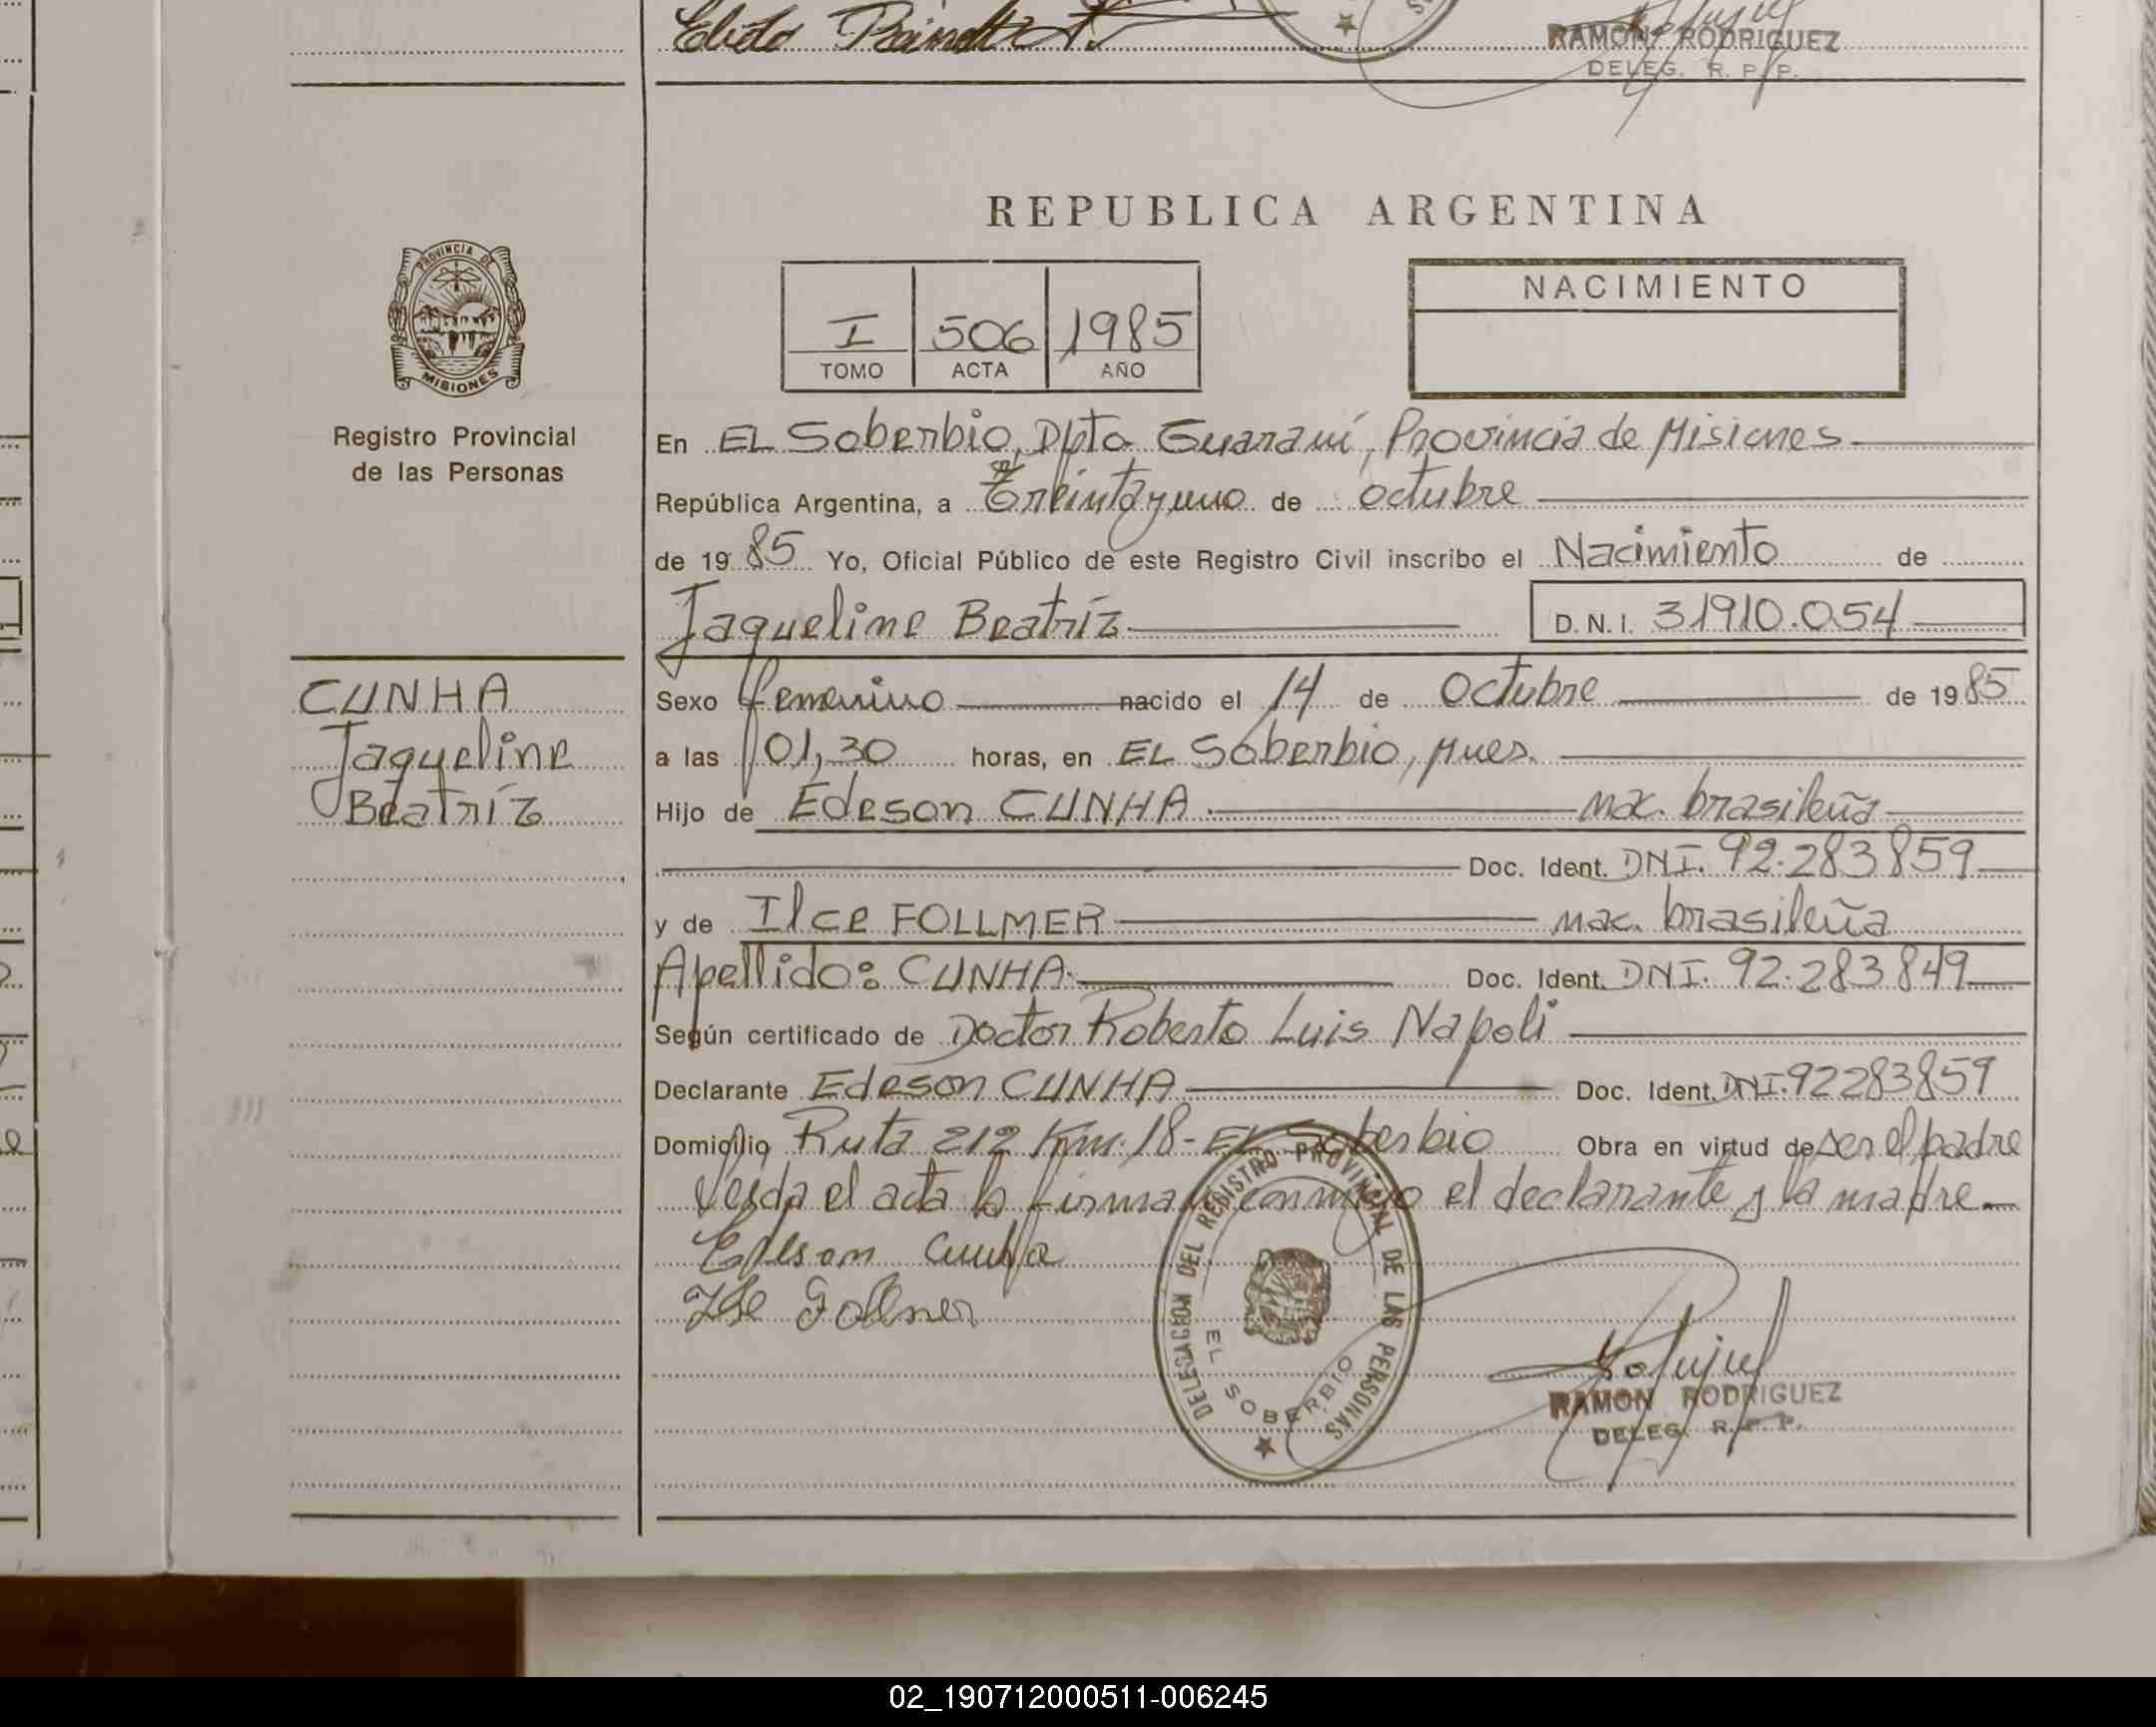 RAMON RODRIGUEZ
DELEG. R. P. P.
REPUBLICA ARGENTINA
PROVINCIA DE
MISIONES
Registro Provincial
de las Personas
I 506 1985
TOMO ACTA AÑO
NACIMIENTO
En EL Soberbio, Dpto Guaraní, Provincia de Misiones
República Argentina, a Treintayuno de octubre
de 1985 Yo, Oficial Público de este Registro Civil inscribo el Nacimiento de
Jaqueline Beatríz
D.N.I. 31910.054
CUNHA
Jaqueline
Beatríz
Sexo femenino nacido el 14 de Octubre de 1985
a las 01,30 horas, en EL Soberbio, Mnes.
Hijo de Edeson CUNHA nac. brasileña
Doc. Ident. DNI. 92.283859
y de Ilce FOLLMER nac. brasileña
Apellido: CUNHA Doc. Ident. DNI. 92.283849
Según certificado de Doctor Roberto Luis Napoli
Declarante Edeson CUNHA Doc. Ident. DNI.92283859
Domicilio Ruta 212 Km. 18- EL Soberbio Obra en virtud de ser el padre
Leída el acta la firman conmigo el declarante y la madre.
Edeson Cunha
DELEGACION DEL REGISTRO PROVINCIAL DE LAS PERSONAS
EL SOBERBIO
RAMON RODRIGUEZ
DELEG. R. P. P.
02_190712000511-006245